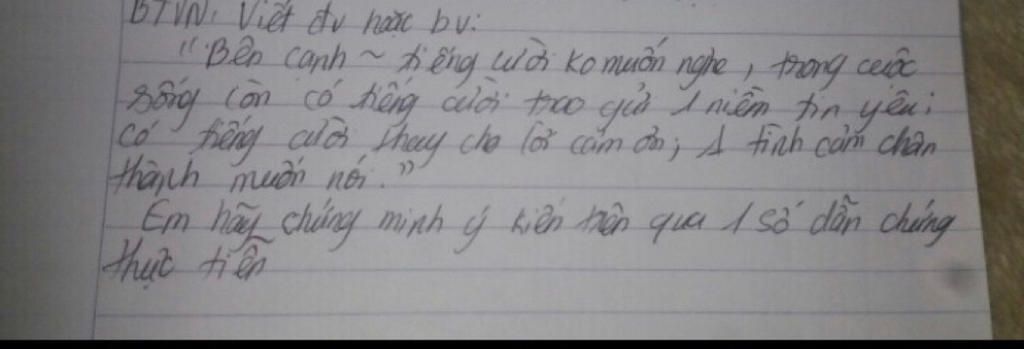 BTVN: Viết đv hoặc bv:
"Bên cạnh ~ tiếng cười ko muốn nghe, trong cuộc
sống còn có tiếng cười trao gửi 1 niềm tin yêu;
có tiếng cười thay cho lời cảm ơn; 1 tình cảm chân
thành muốn nói."
Em hãy chứng minh ý kiến trên qua 1 số dẫn chứng
thực tiễn